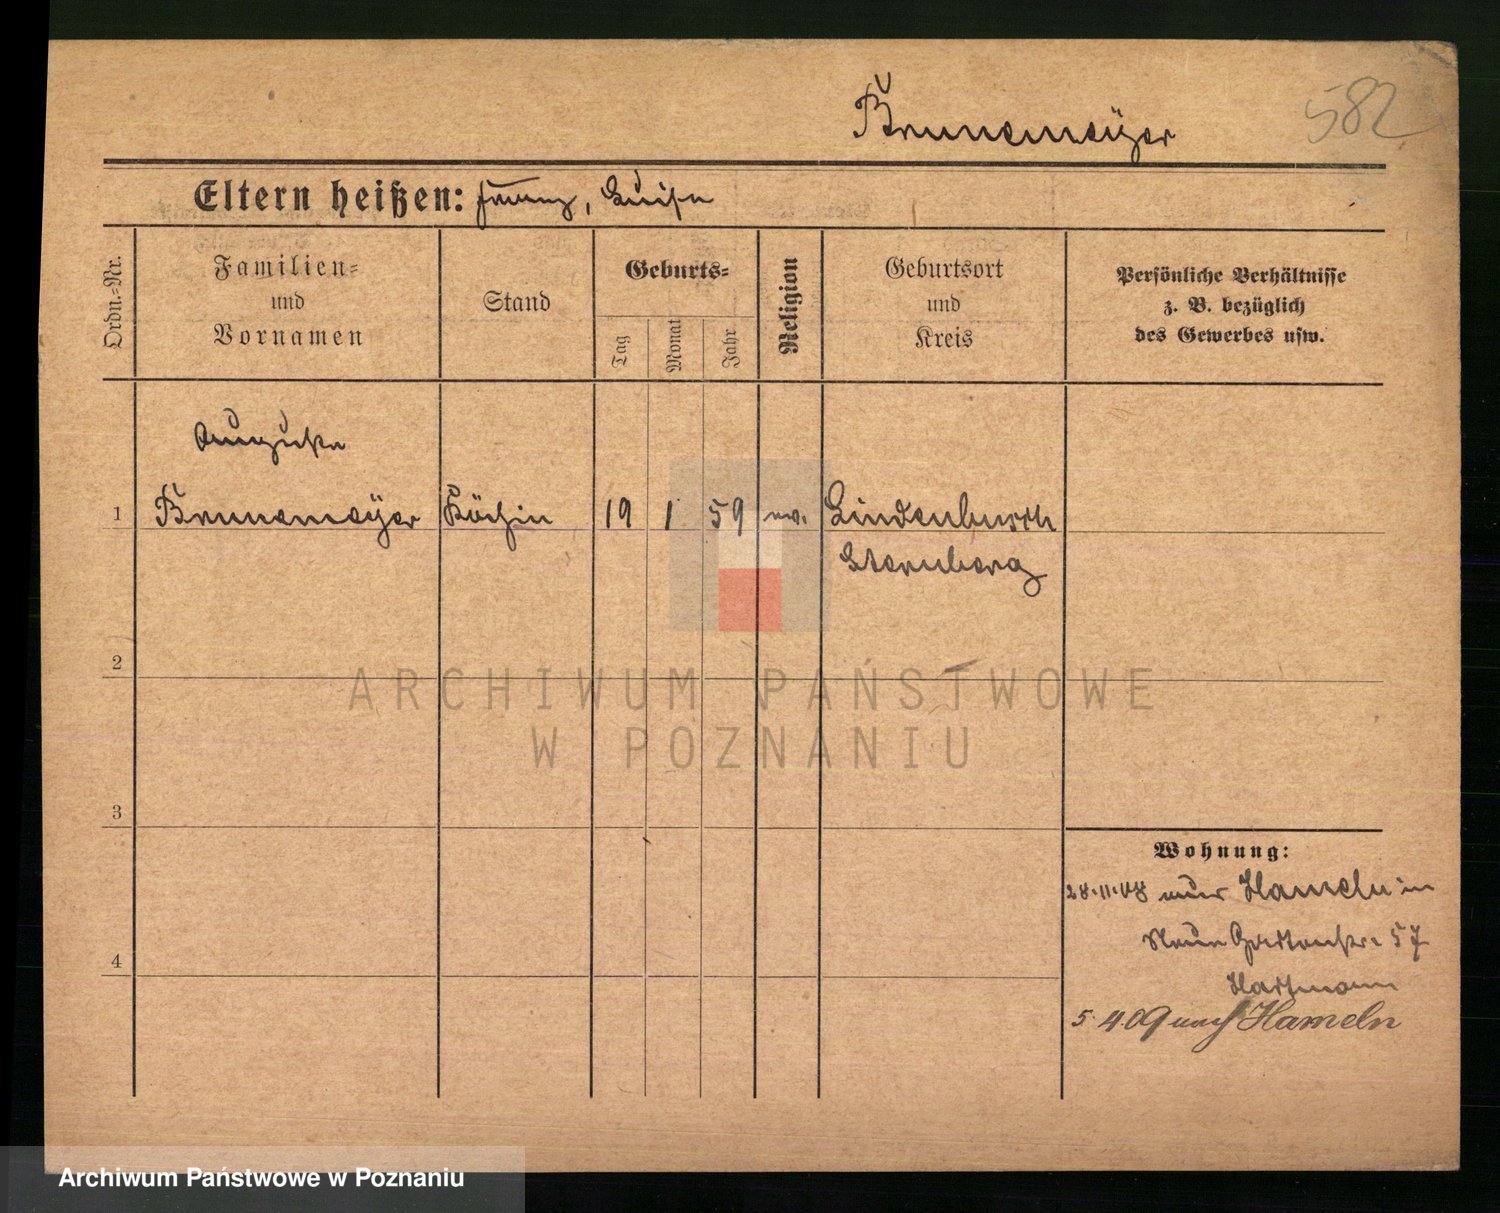 Brunemeÿer
582
Eltern heißen: Franz, Luise
Ordn.-Nr.
Familien-
und
Vornamen
Stand
Geburts-
Tag
Monat
Jahr
Religion
Geburtsort
und
Kreis
Persönliche Verhältnisse
z. B. bezüglich
des Gewerbes usw.
Auguste
1 Brunemeÿer Köchin 19 1 59 ev. Lindenbusch
Sternberg
2
3
4
Wohnung:
28.11.08 aus Hameln in
Neue Gartenstr. 57
Hartmann
5.4.09 nach Hameln
ARCHIWUM PAŃSTWOWE
W POZNANIU
Archiwum Państwowe w Poznaniu